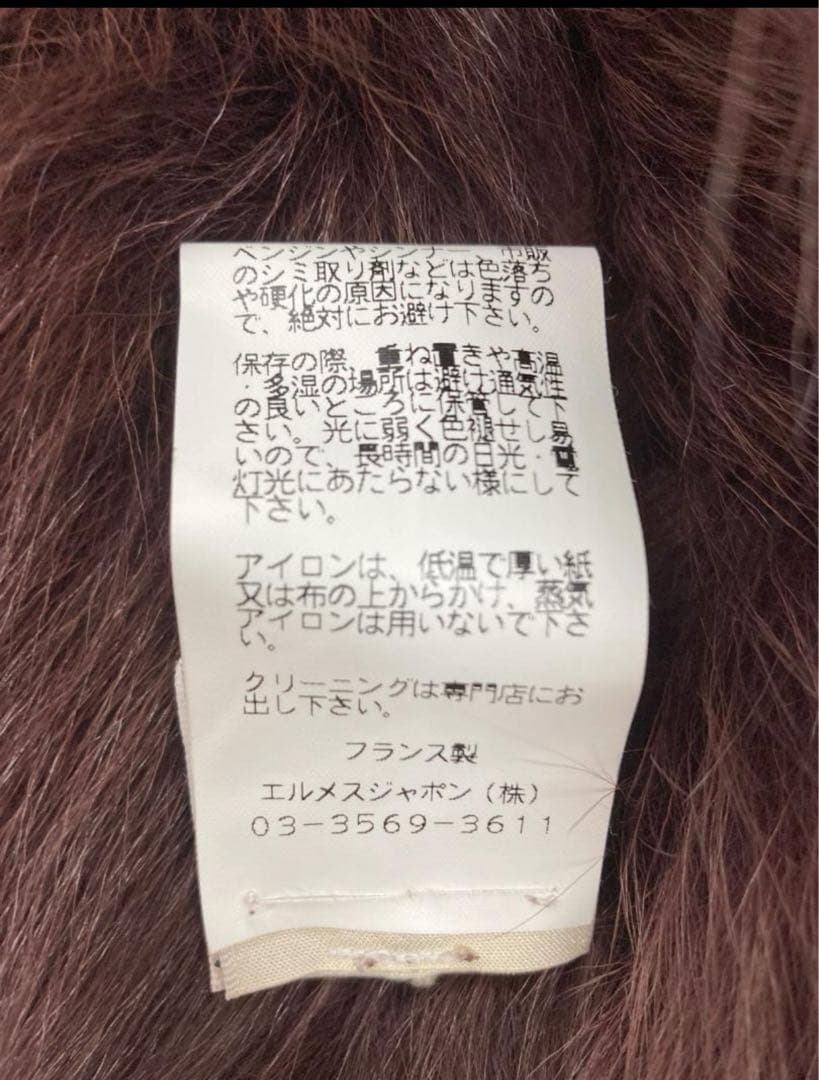 ベンジンやシンナー、市販
のシミ取り剤などは色落ち
や硬化の原因になりますの
で、絶対にお避け下さい。
保存の際、重ね置きや高温
・多湿の場所は避け通気性
の良いところに保管して下
さい。光に弱く色褪せし易
いので、長時間の日光・電
灯光にあたらない様にして
下さい。
アイロンは、低温で厚い紙
又は布の上からかけ、蒸気
アイロンは用いないで下さ
い。
クリーニングは専門店にお
出し下さい。
フランス製
エルメスジャポン(株)
03-3569-3611